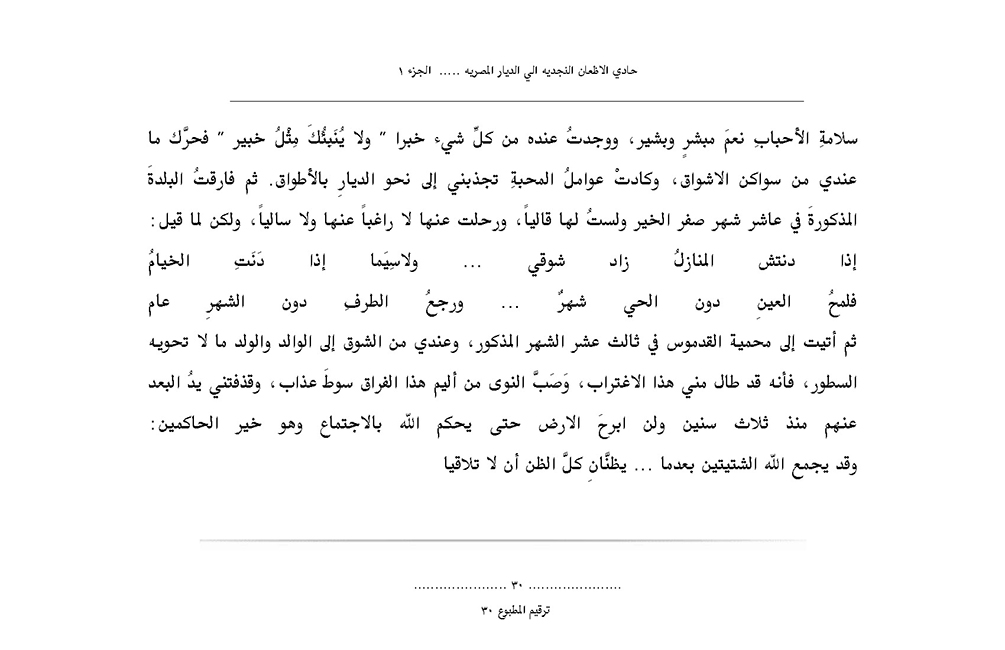 حادي الاظعان النجديه الي الديار المصريه ..... الجزء ١
سلامةِ الأحبابِ نعمَ مبشرٍ وبشير، ووجدتُ عنده من كلِّ شيء خبرا " ولا يُنَبئُكَ مِثْلُ خبير " فحرَّك ما
عندي من سواكن الاشواق، وكادتْ عواملُ المحبةِ تجذبني إلى نحو الديارِ بالأطواق. ثم فارقتُ البلدةَ
المذكورةَ في عاشر شهر صفر الخير ولستُ لها قالياً، ورحلت عنها لا راغباً عنها ولا سالياً، ولكن لما قيل:
إذا دنتش المنازلُ زاد شوقي ... ولاسِيَما إذا دَنَتِ الخيامُ
فلمحُ العينِ دون الحي شهرٌ ... ورجعُ الطرفِ دون الشهرِ عام
ثم أتيت إلى محمية القدموس في ثالث عشر الشهر المذكور، وعندي من الشوق إلى الوالد والولد ما لا تحويه
السطور، فأنه قد طال مني هذا الاغتراب، وَصَبَّ النوى من أليم هذا الفراق سوطَ عذاب، وقذفتني يدُ البعد
عنهم منذ ثلاث سنين ولن ابرحَ الارض حتى يحكم الله بالاجتماع وهو خير الحاكمين:
وقد يجمع الله الشتيتين بعدما ... يظنَّانِ كلَّ الظن أن لا تلاقيا
...................... ٣٠ ......................
ترقيم المطبوع ٣٠